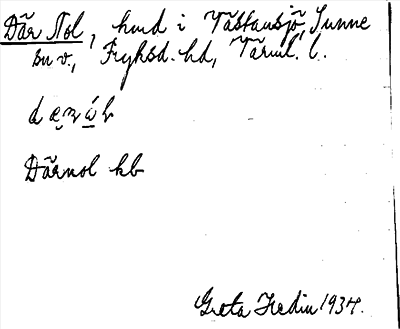 Där Nol, hmd i Västansjö, Sunne
sn v., Fryksd. hd, Värml. l.
Därnol hb
Greta Hedin 1934.